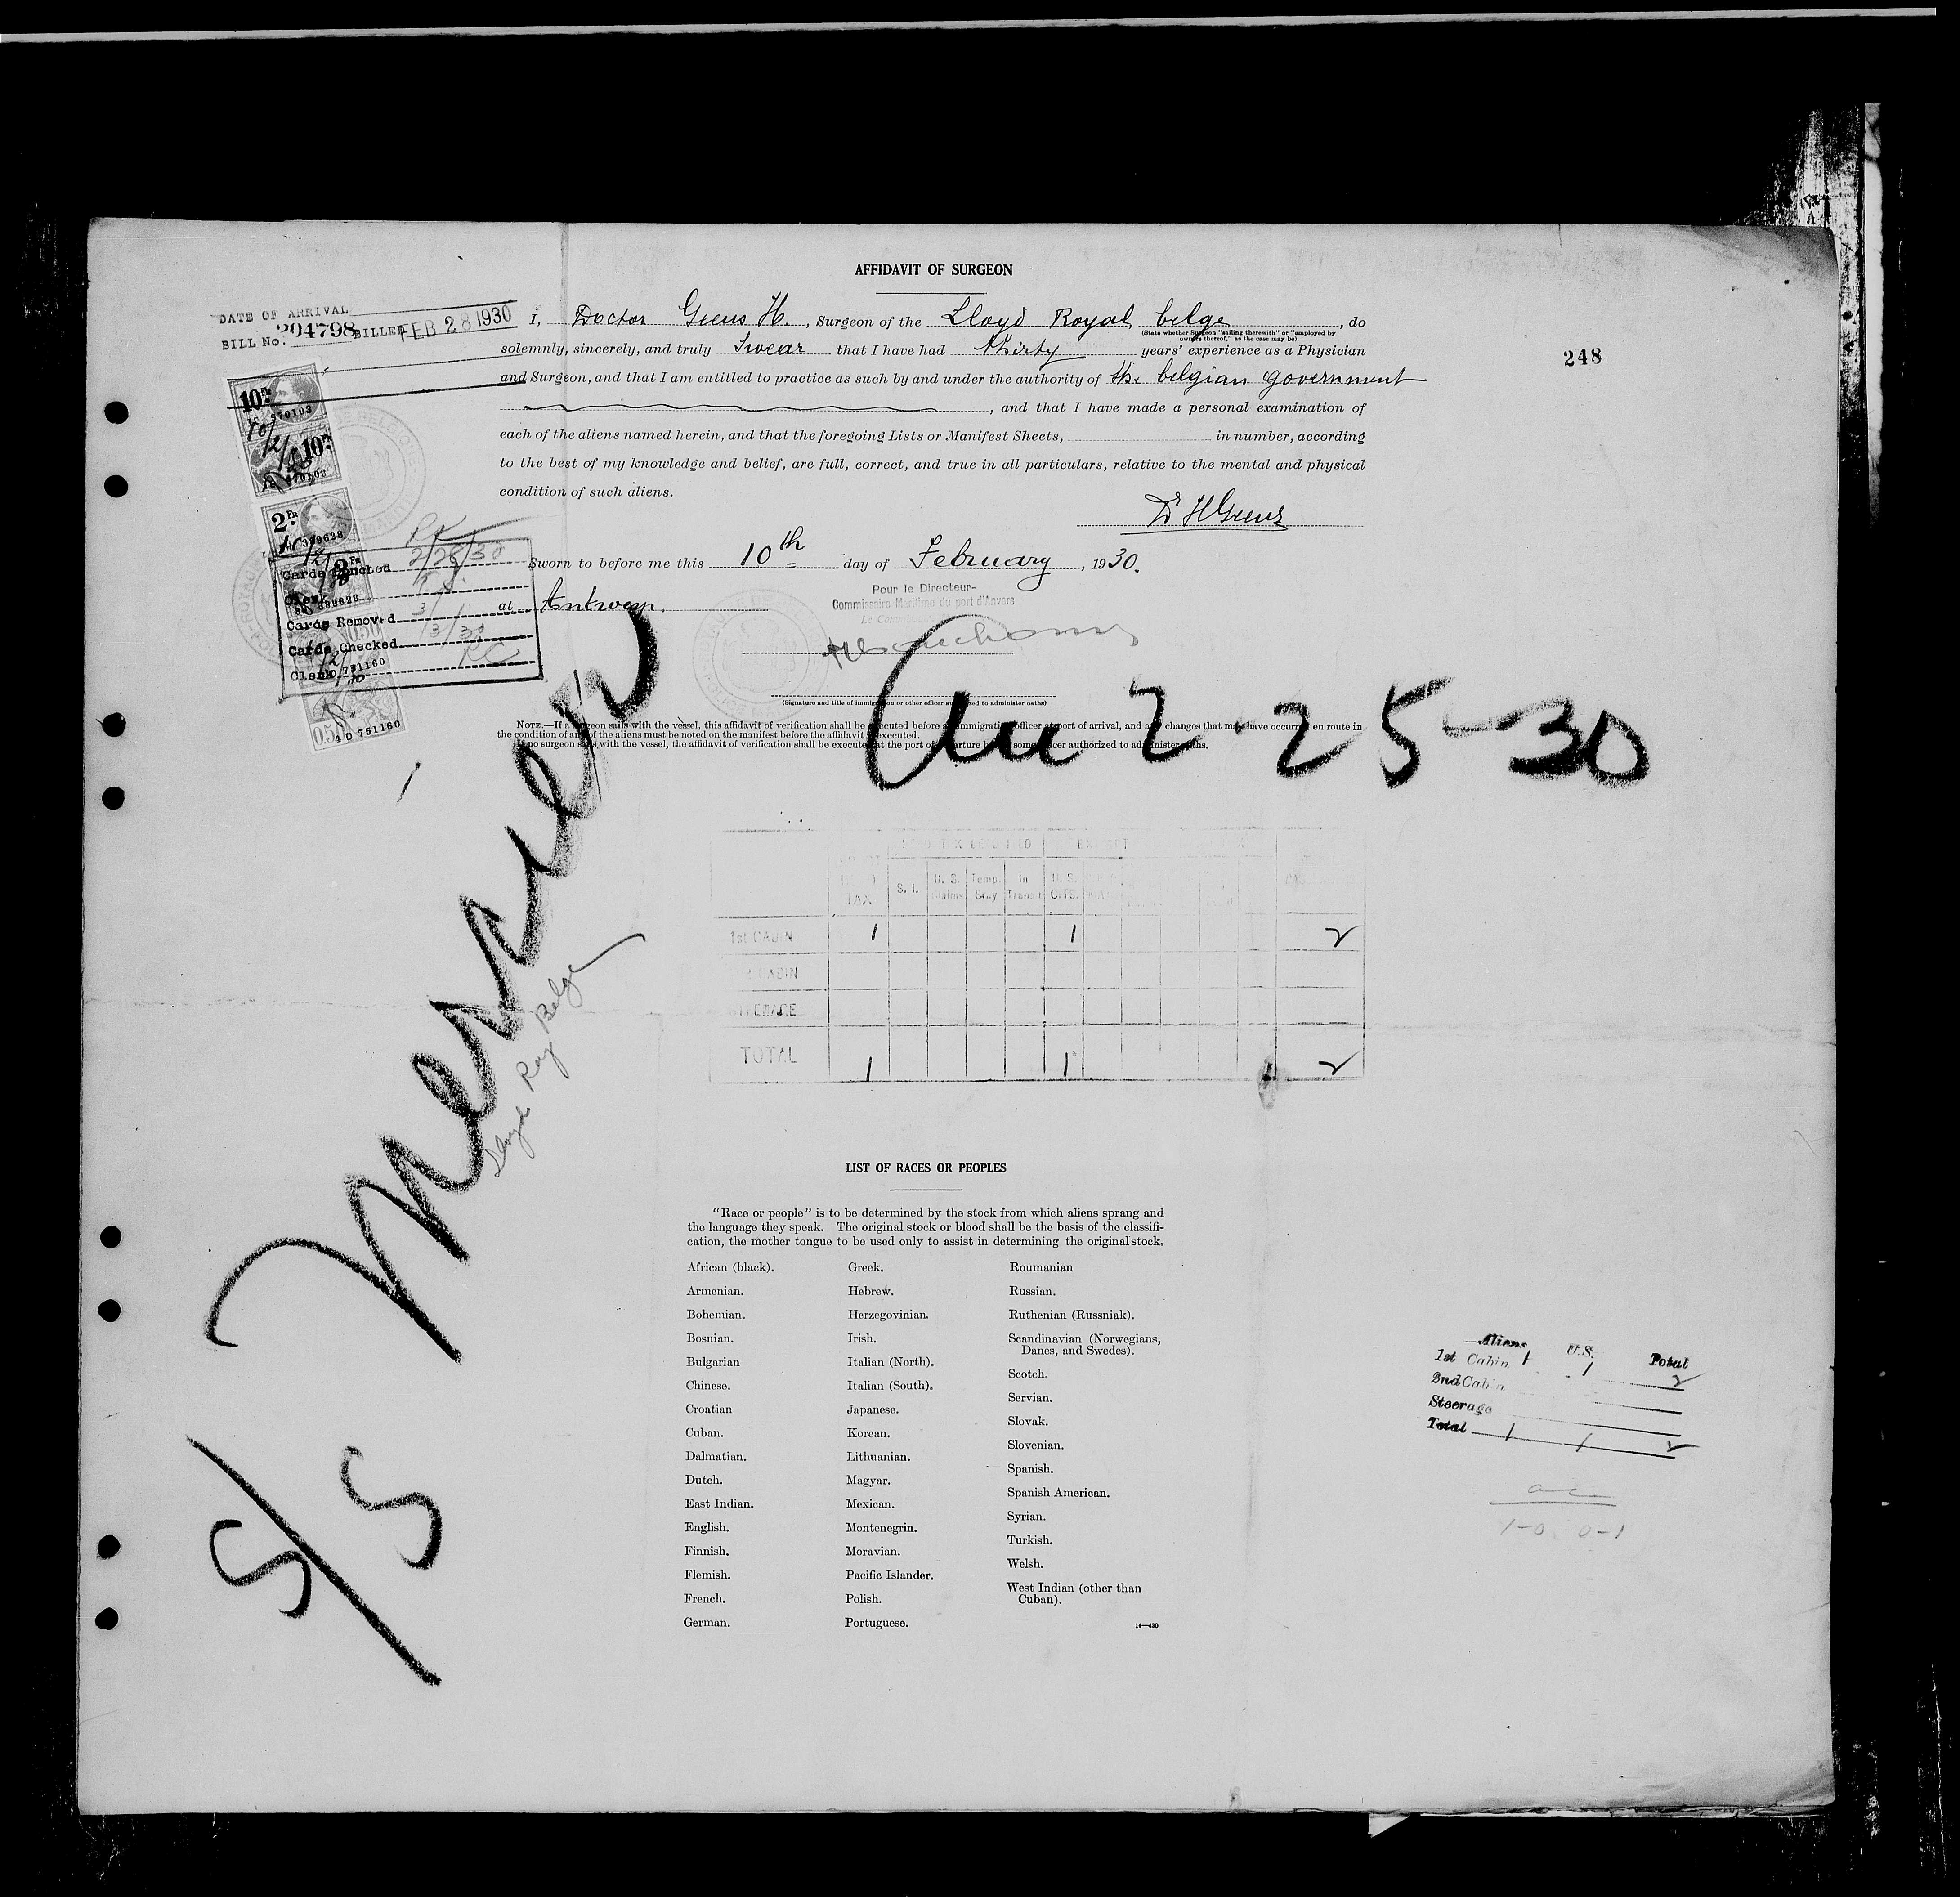 AFFIDAVIT OF SURGEON
DATE OF ARRIVAL
BILL No. 204798 BILLED FEB 28 1930
248
I, Doctor Geens H., Surgeon of the Lloyd Royal belge, do
(State whether Surgeon "sailing therewith" or "employed by
owners thereof," as the case may be)
solemnly, sincerely, and truly Swear that I have had thirty years' experience as a Physician
and Surgeon, and that I am entitled to practice as such by and under the authority of the belgian government
, and that I have made a personal examination of
each of the aliens named herein, and that the foregoing Lists or Manifest Sheets, in number, according
to the best of my knowledge and belief, are full, correct, and true in all particulars, relative to the mental and physical
condition of such aliens.
Dr H Geens
Sworn to before me this 10th day of February, 1930.
at Antwerp.
Pour le Directeur-
Commissaire Maritime du port d'Anvers
(Signature and title of immigration or other officer authorized to administer oaths)
NOTE.—If a surgeon sails with the vessel, this affidavit of verification shall be executed before an immigration officer at port of arrival, and any changes that may have occurred en route in
the condition of any of the aliens must be noted on the manifest before the affidavit is executed.
If no surgeon sails with the vessel, the affidavit of verification shall be executed at the port of departure before some officer authorized to administer oaths.
10 Fr
970103
10 Fr
2 Fr
389628
2 Fr
389628
0.50
751160
0.50
751160
Cards Punched 2/28/30
Clerk
Cards Removed 3/1
Cards Checked 3/30
Clerk RC
Arr 2-25-30
S/S Mercier
Lloyd Roy Belge
S. I.
U. S.
Temp. Stay
In Transit
U. S. CITS.
TAX
1st CABIN 1 1 2
CABIN
STEERAGE
TOTAL 1 1 2
LIST OF RACES OR PEOPLES
"Race or people" is to be determined by the stock from which aliens sprang and
the language they speak. The original stock or blood shall be the basis of the classifi-
cation, the mother tongue to be used only to assist in determining the original stock.
African (black).
Armenian.
Bohemian.
Bosnian.
Bulgarian
Chinese.
Croatian
Cuban.
Dalmatian.
Dutch.
East Indian.
English.
Finnish.
Flemish.
French.
German.
Greek.
Hebrew.
Herzegovinian.
Irish.
Italian (North).
Italian (South).
Japanese.
Korean.
Lithuanian.
Magyar.
Mexican.
Montenegrin.
Moravian.
Pacific Islander.
Polish.
Portuguese.
Roumanian
Russian.
Ruthenian (Russniak).
Scandinavian (Norwegians,
Danes, and Swedes).
Scotch.
Servian.
Slovak.
Slovenian.
Spanish.
Spanish American.
Syrian.
Turkish.
Welsh.
West Indian (other than
Cuban).
14—430
Aliens U.S. Total
1st Cabin 1 1 2
2nd Cabin
Steerage
Total 1 1 2
1-0 0-1